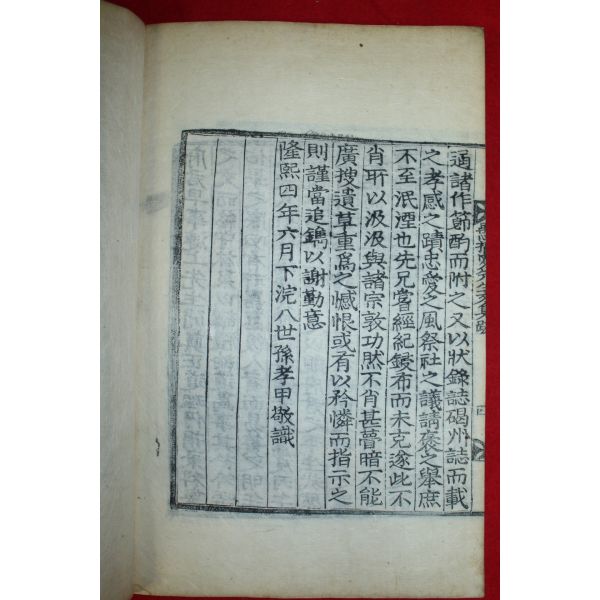 通諸作節酌而附之又以狀錄誌碣州誌而載
之孝感之蹟忠愛之風祭社之議請褒之舉庶
不至泯湮也先兄嘗經紀鋟布而未克遂此不
肖所以汲汲與諸宗敦功然不肖甚瞢暗不能
廣搜遺草重爲之憾恨或有以矜憐而指示之
則謹當追鐫以謝勤意
隆熙四年六月下浣八世孫孝甲敬識